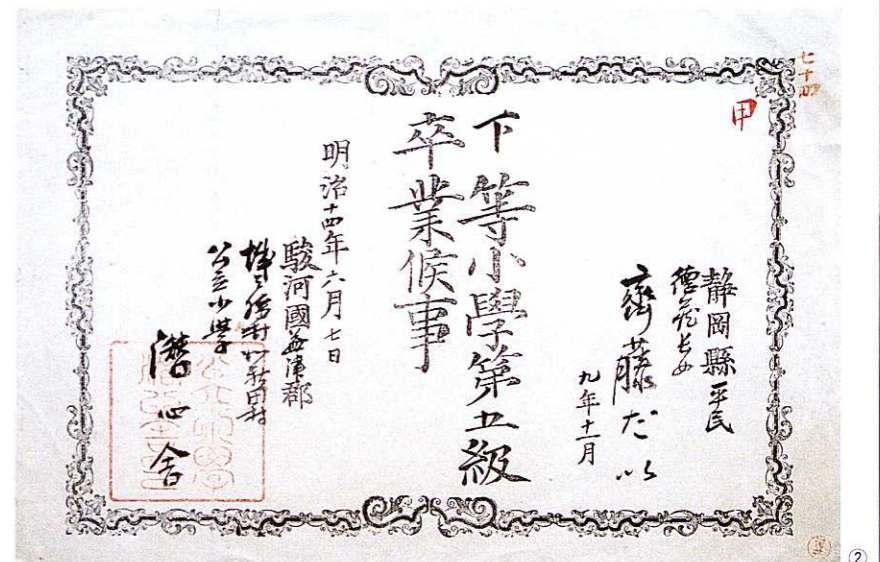 甲
静岡縣平民
德藏長女
齊藤だい
九年十一月
下等小學第五級
卒業候事
明治十四年六月七日
駿河國益津郡
公立小學
潛心舎
②